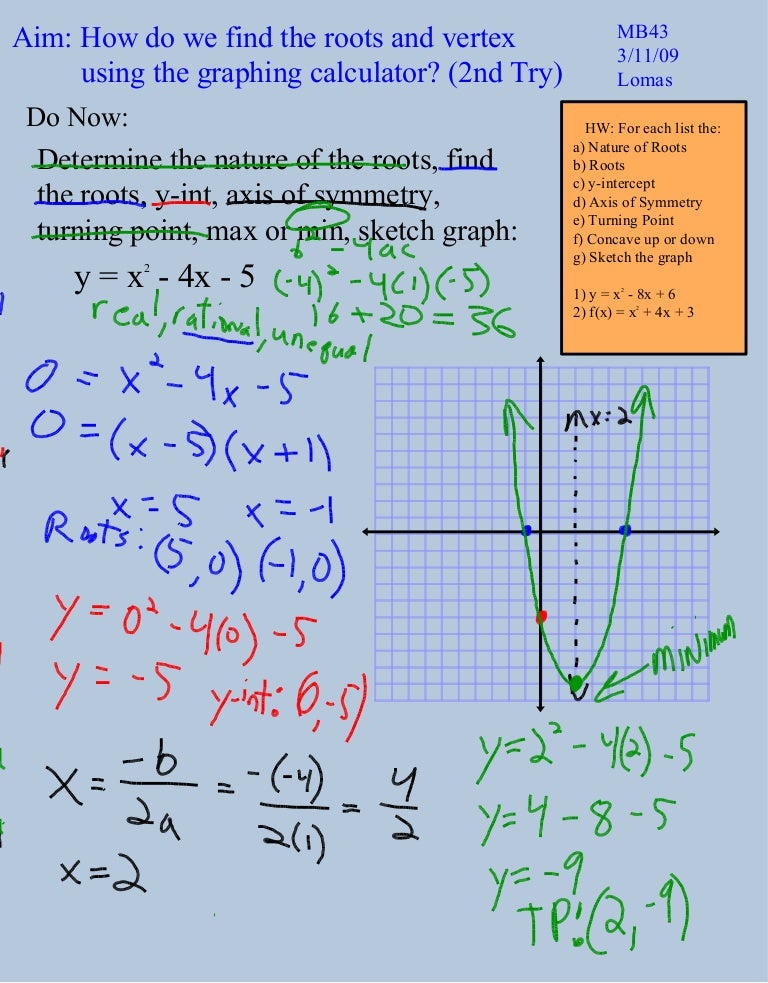 Aim: How do we find the roots and vertex
using the graphing calculator? (2nd Try)
MB43
3/11/09
Lomas
Do Now:
Determine the nature of the roots, find
the roots, y-int, axis of symmetry,
turning point, max or min, sketch graph:
b² - 4ac
y = x² - 4x - 5
(-4)² - 4(1)(-5)
16 + 20 = 36
real, rational, unequal
HW: For each list the:
a) Nature of Roots
b) Roots
c) y-intercept
d) Axis of Symmetry
e) Turning Point
f) Concave up or down
g) Sketch the graph
1) y = x² - 8x + 6
2) f(x) = x² + 4x + 3
0 = x² - 4x - 5
0 = (x - 5)(x + 1)
x = 5 x = -1
Roots: (5, 0) (-1, 0)
y = 0² - 4(0) - 5
y = -5 y-int: (0, -5)
x = -b/2a = -(-4)/2(1) = 4/2
x = 2
x = 2
MINIMUM
y = 2² - 4(2) - 5
y = 4 - 8 - 5
y = -9
TP: (2, -9)